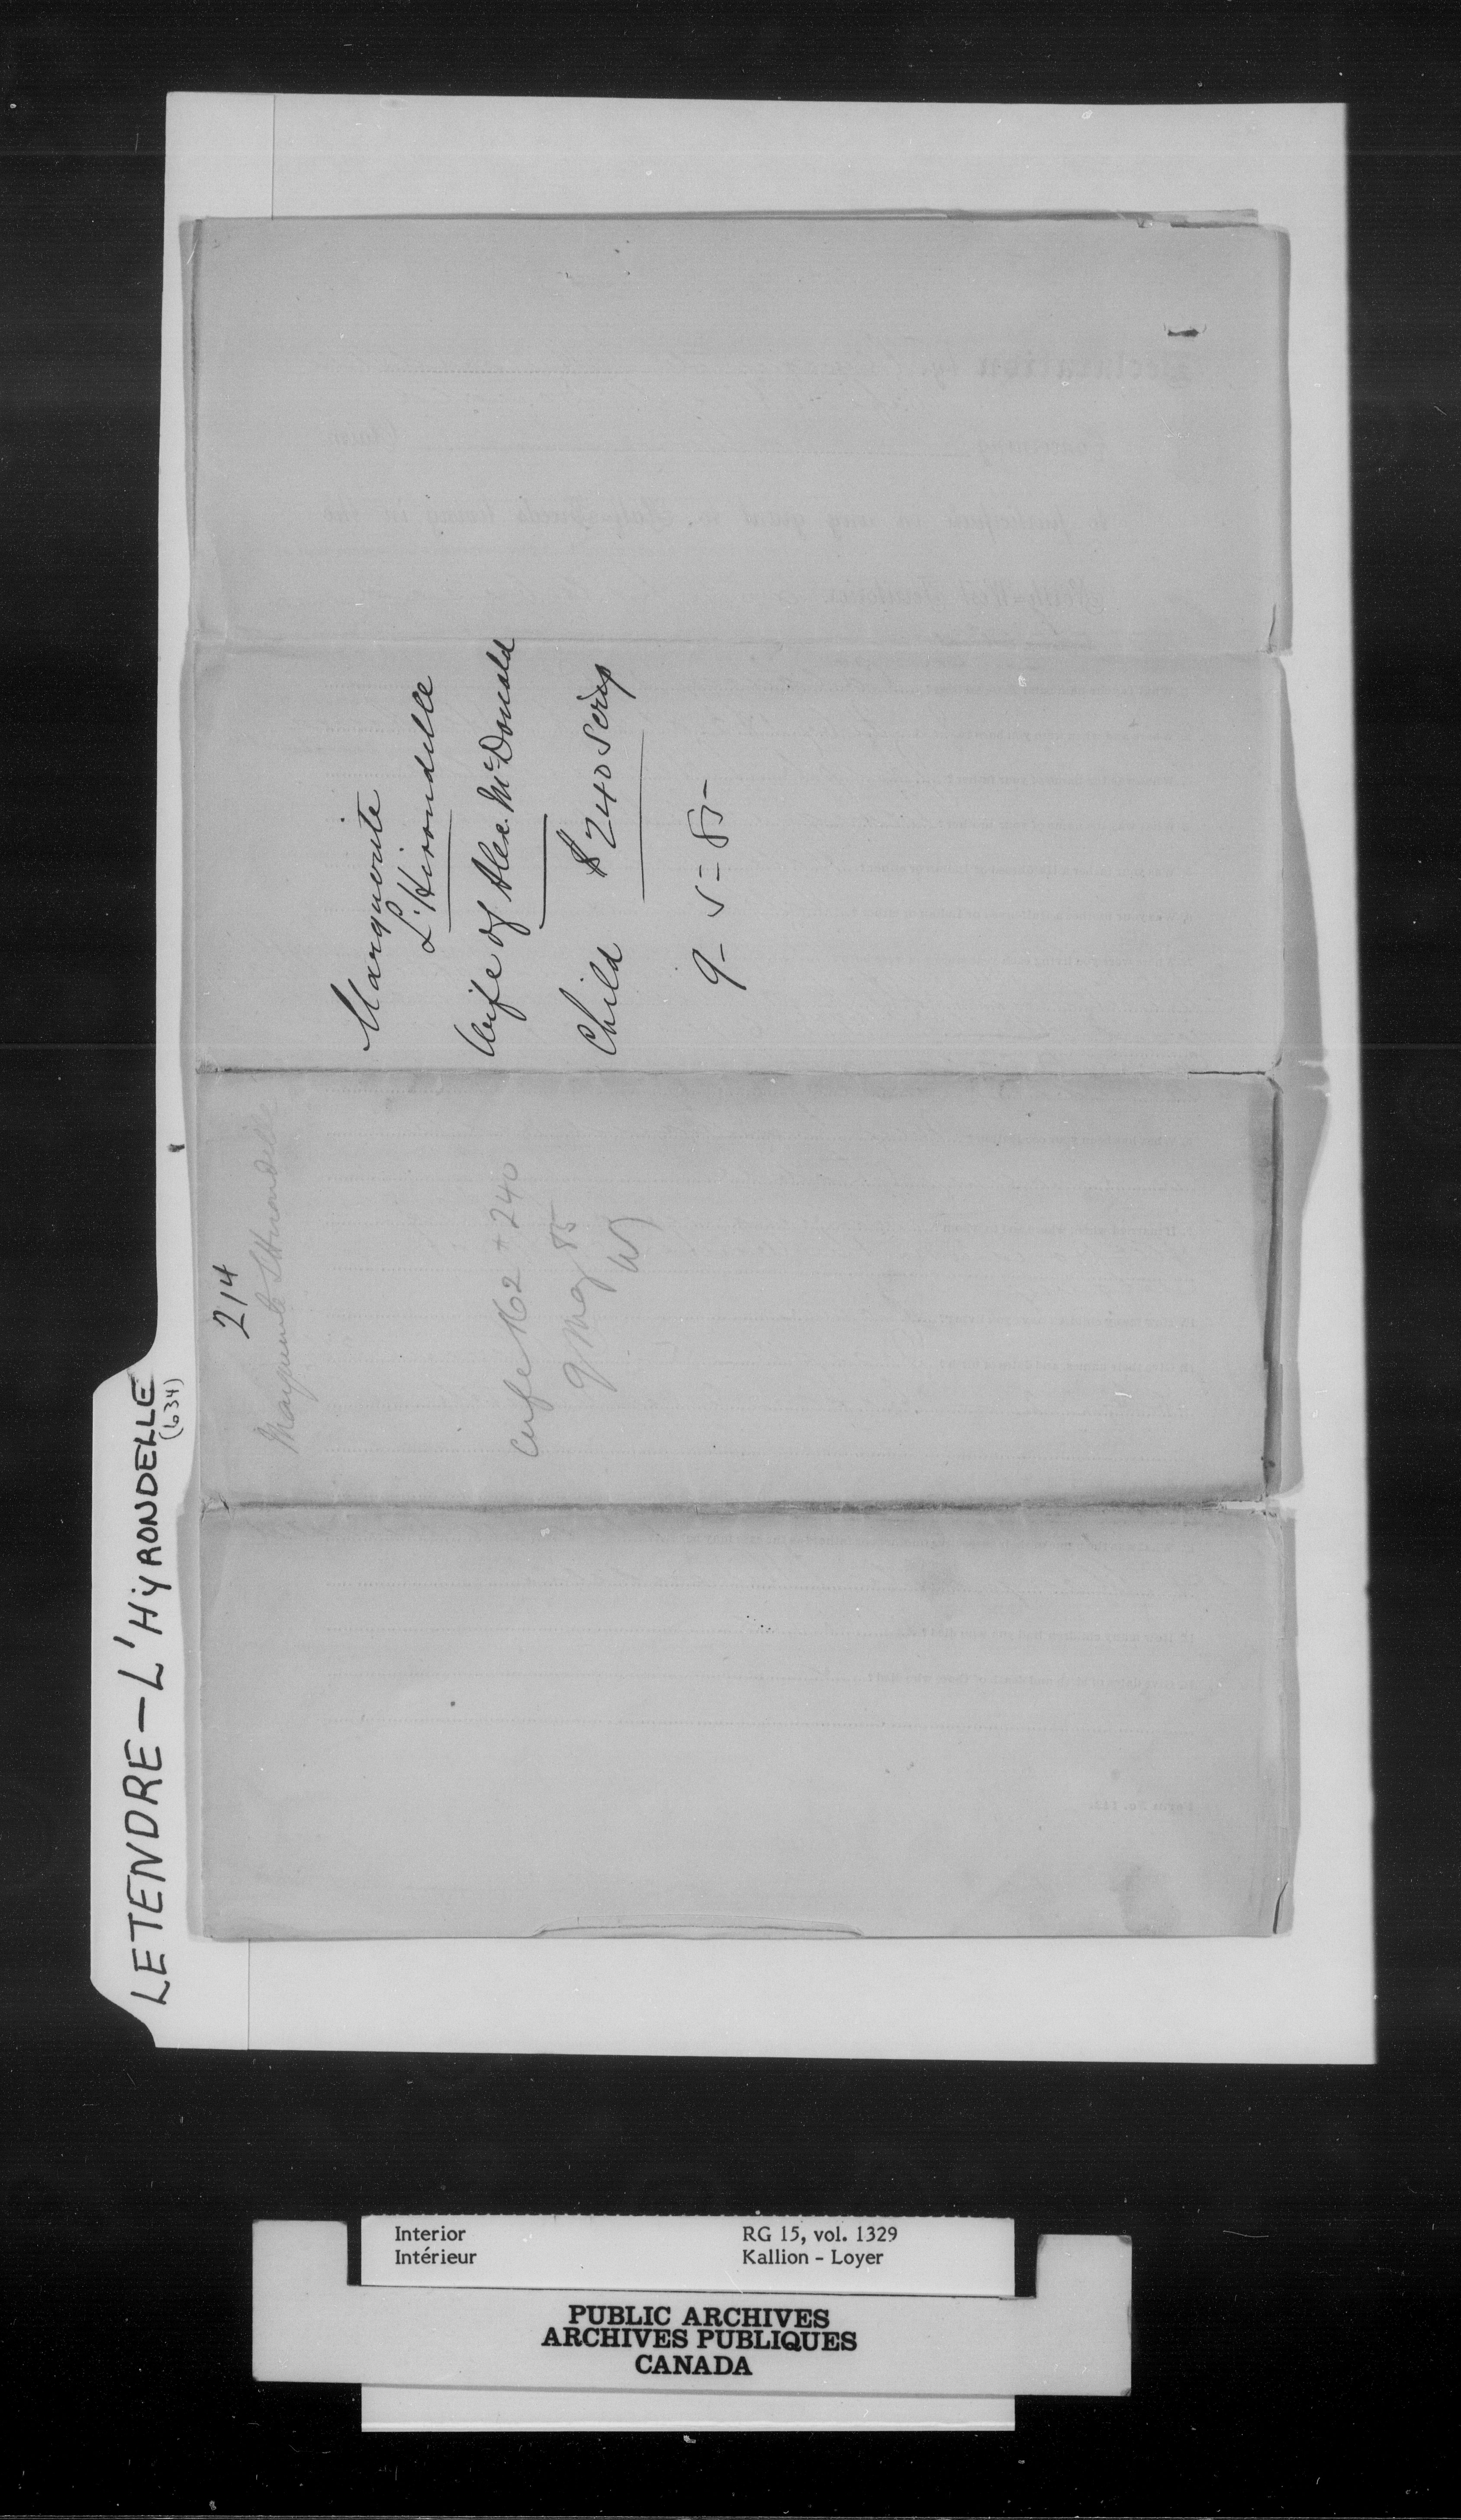 LETENDRE – L'HYRONDELLE
(634)
Marguerite
L'Hirondelle
Wife of Alex. McDonald
Child $240 Scrip
9 – 5 = 85 –
214
Marguerite L'Hirondelle
162 + 240
9 May 85
Interior
Intérieur
RG 15, vol. 1329
Kallion - Loyer
PUBLIC ARCHIVES
ARCHIVES PUBLIQUES
CANADA